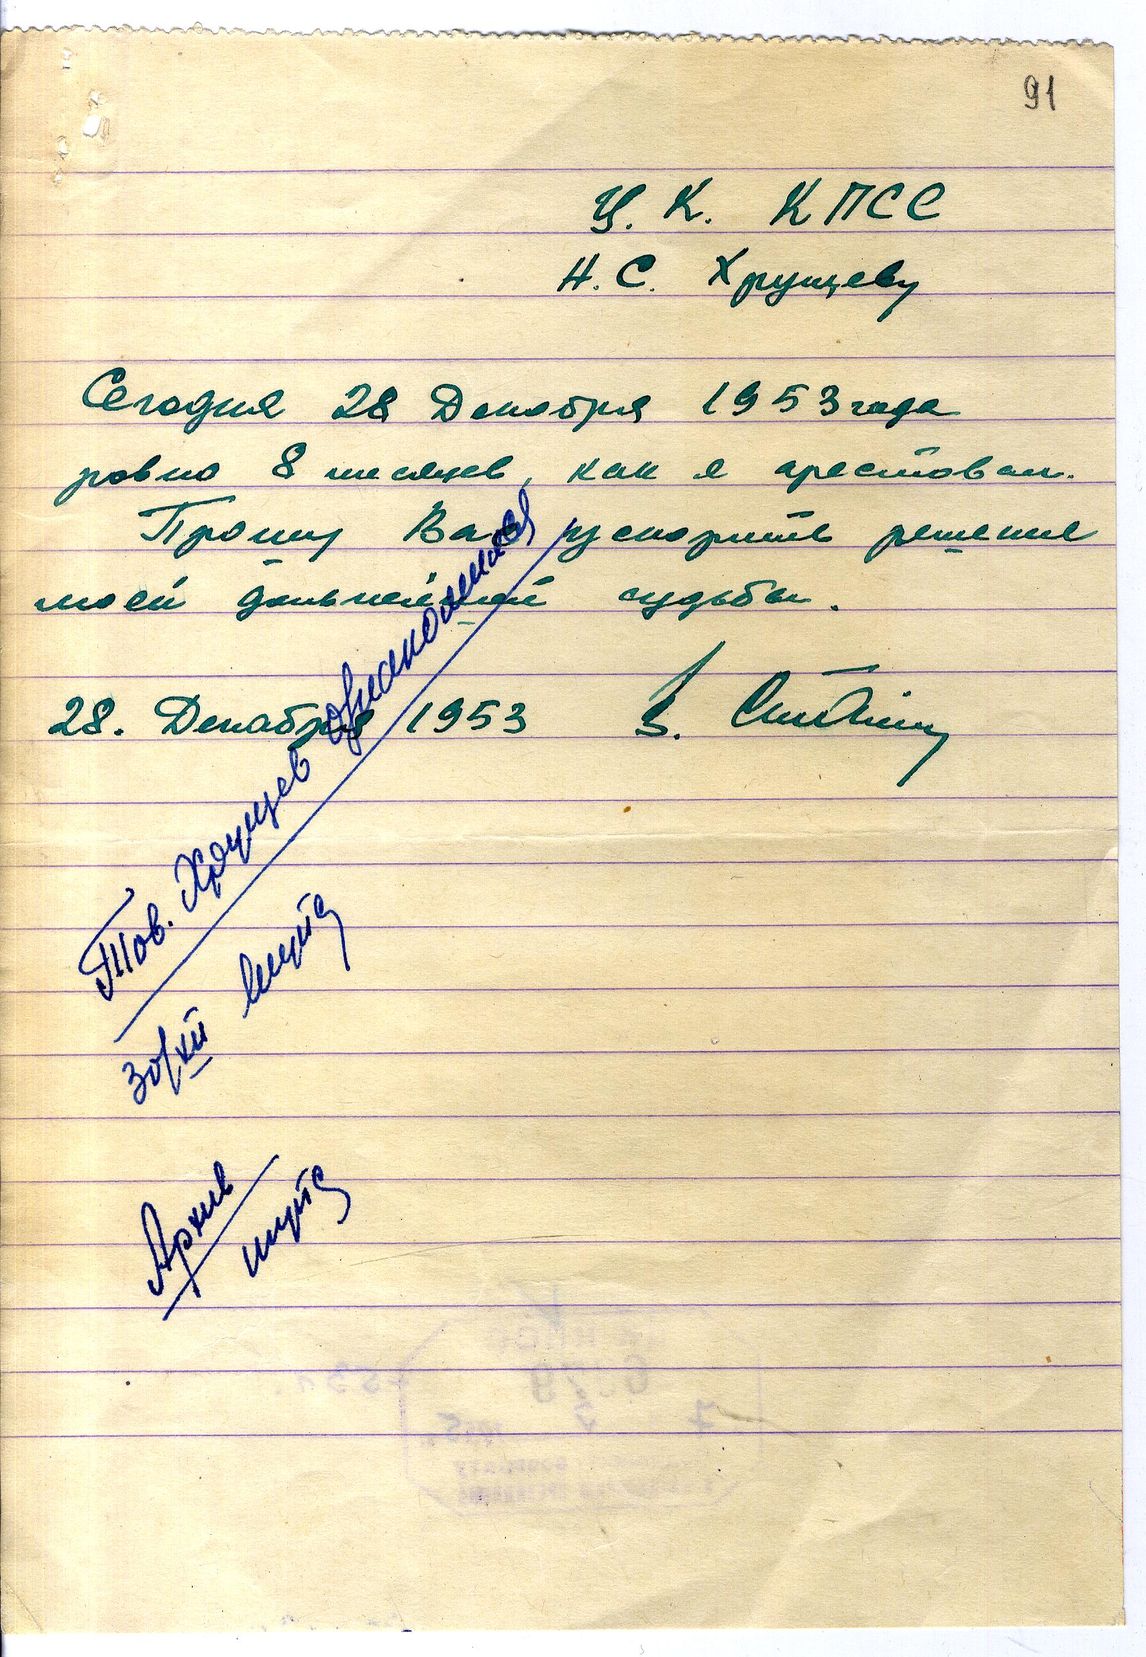 91
Ц. К. КПСС
Н. С. Хрущеву
Сегодня 28 Декабря 1953 года
ровно 8 месяцев, как я арестован.
Прошу Вас ускорить решение
моей дальнейшей судьбы.
28. Декабря 1953 В. Сталин
Тов. Хрущев ознакомился
30/XII
Архив